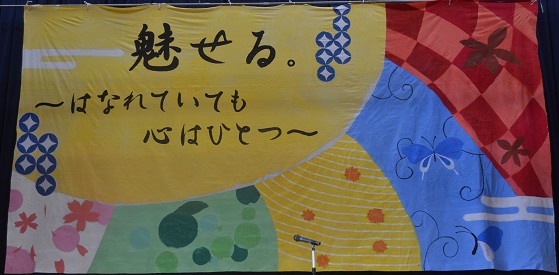 魅せる。
～はなれていても
心はひとつ～